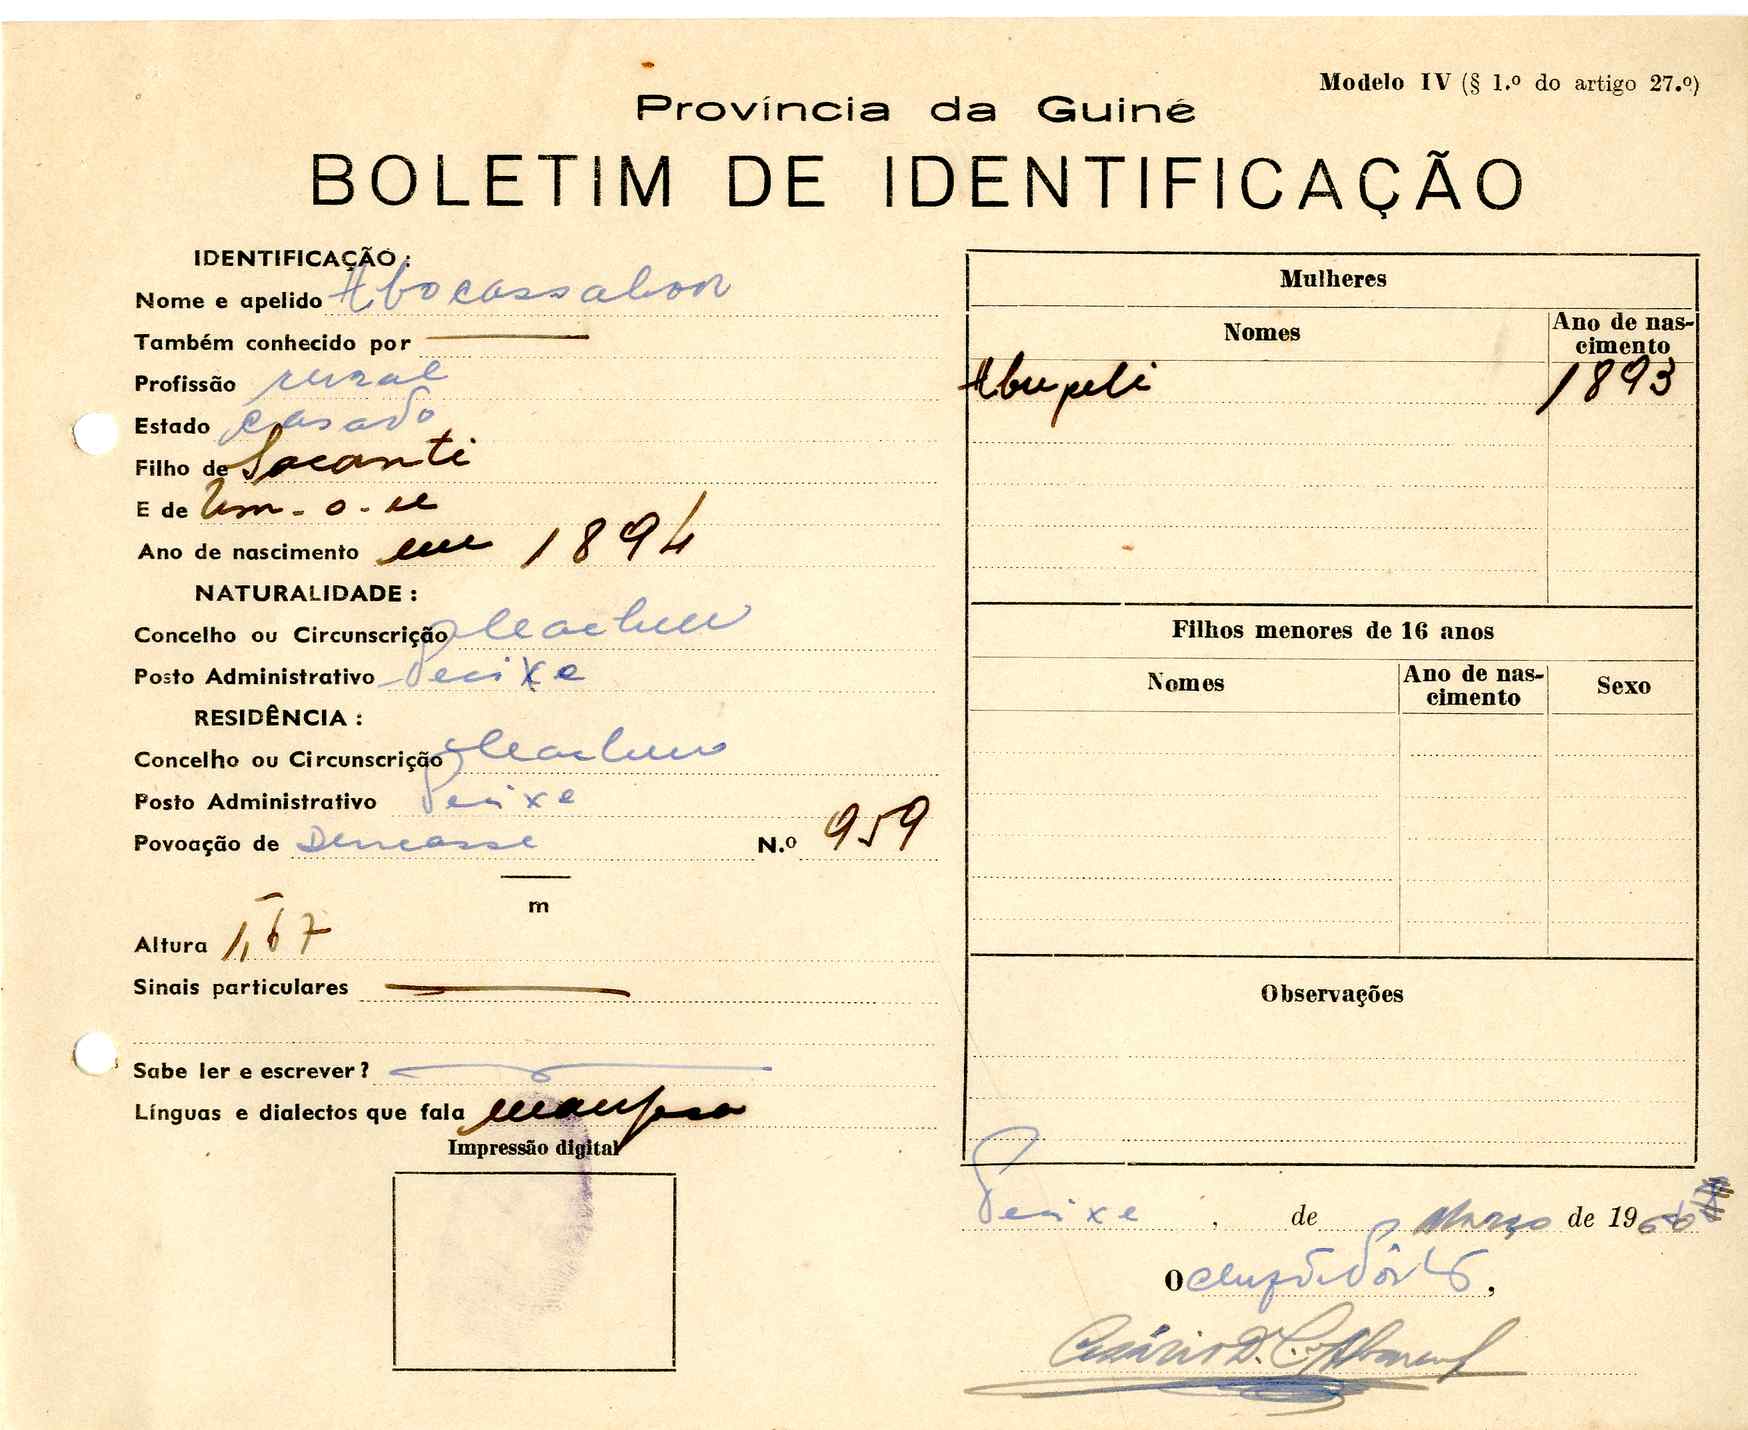 Modelo IV (§ 1.º do artigo 27.º)
Província da Guiné
BOLETIM DE IDENTIFICAÇÃO
IDENTIFICAÇÃO:
Nome e apelido Abocassabor
Também conhecido por
Profissão rural
Estado casado
Filho de Sacanti
E de Um-o-u
Ano de nascimento em 1894
NATURALIDADE:
Concelho ou Circunscrição Cacheu
Posto Administrativo Pecixe
RESIDÊNCIA:
Concelho ou Circunscrição Cacheu
Posto Administrativo Pecixe
Povoação de N.º 959
m
Altura 1,67
Sinais particulares
Sabe ler e escrever?
Línguas e dialectos que fala
Impressão digital
Mulheres
Nomes Ano de nascimento
Abupeli 1893
Filhos menores de 16 anos
Nomes Ano de nascimento Sexo
Observações
Pecixe, de Março de 19
O chefe de Pôsto,
Cesário D. C.